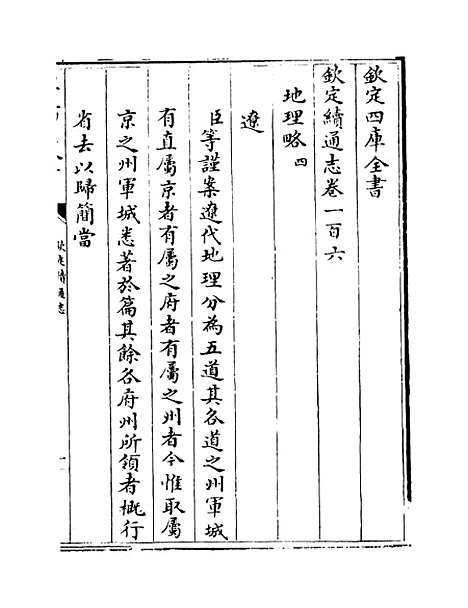 欽定四庫全書
欽定續通志卷一百六
地理略四
遼
臣等謹案遼代地理分為五道其各道之州軍城
有直屬京者有屬之府者有屬之州者今惟取屬
京之州軍城悉著於篇其餘各府州所領者概行
省去以歸簡當
欽定續通志